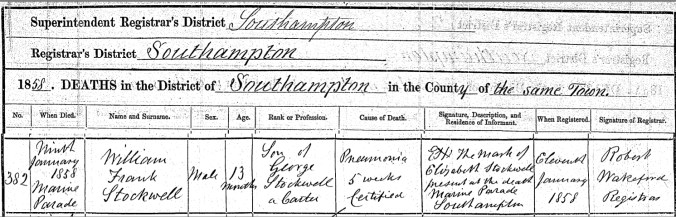 Superintendent Registrar's District Southampton
Registrar's District Southampton
1858. DEATHS in the District of Southampton in the County of the same Town.
No. When Died. Name and Surname. Sex. Age. Rank or Profession. Cause of Death. Signature, Description, and Residence of Informant. When Registered. Signature of Registrar.
382
Ninth
January
1858
Marine
Parade
William
Frank
Stockwell
Male
13
months
Son of
George
Stockwell
a Carter
Pneumonia
5 weeks
Certified
The mark of
Elizabeth Stockwell
present at the death
Marine Parade
Southampton
Eleventh
January
1858
Robert
Wakeford
Registrar